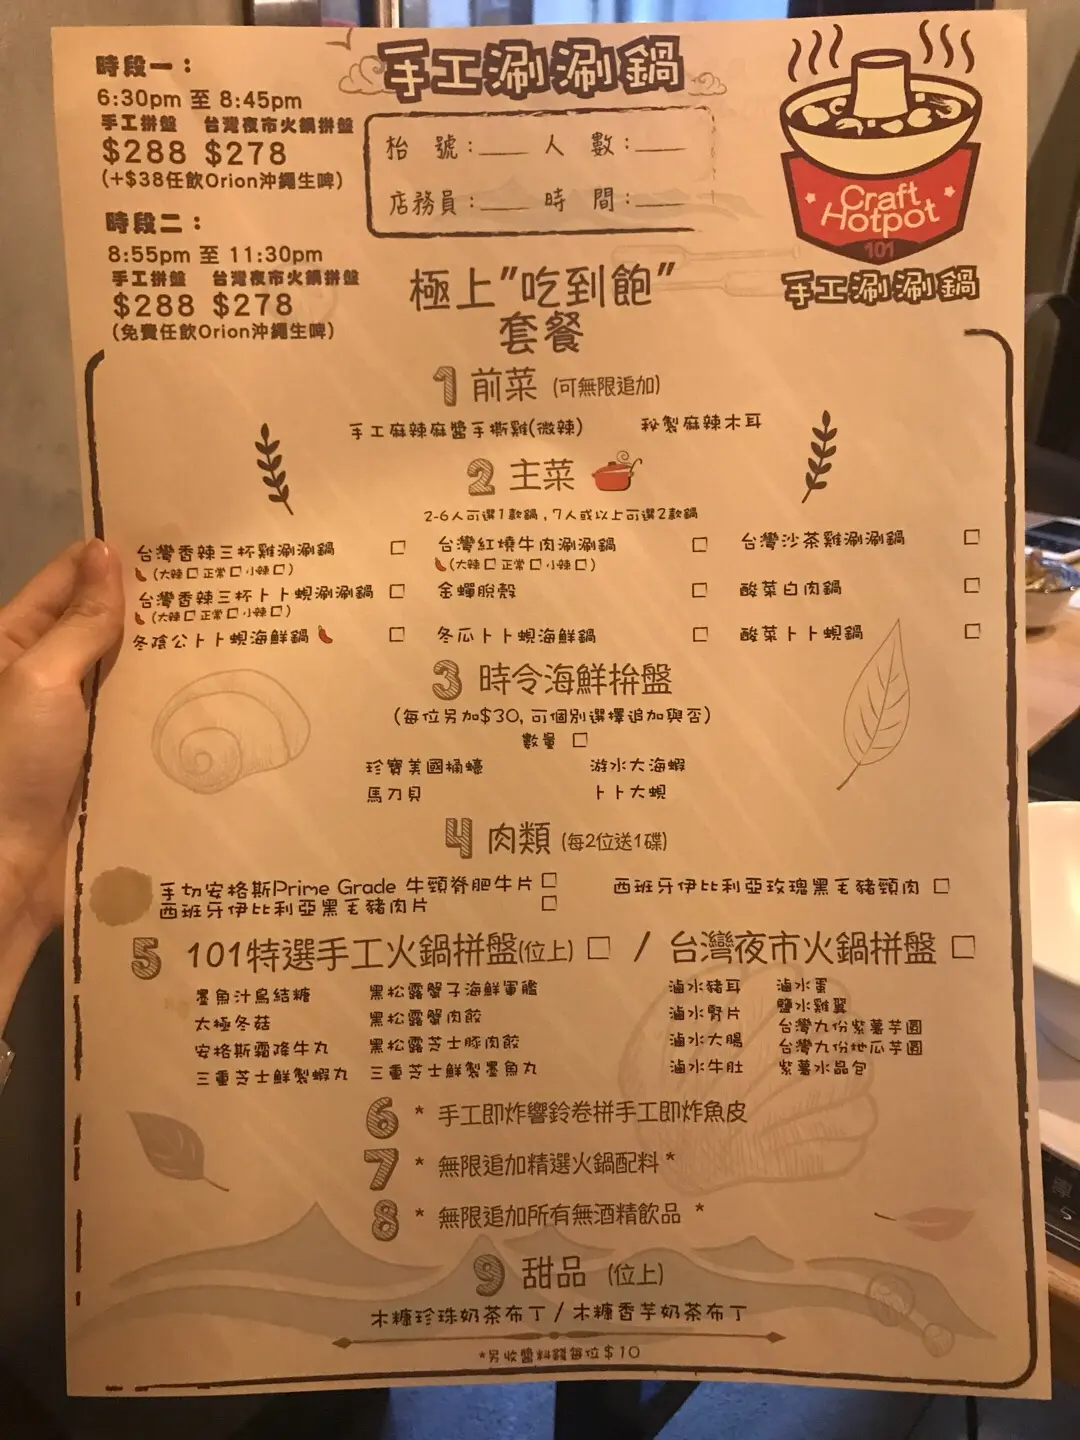 手工涮涮鍋
時段一：
6:30pm 至 8:45pm
手工拼盤 台灣夜市火鍋拼盤
$288 $278
(+$38任飲Orion沖繩生啤)
時段二：
8:55pm 至 11:30pm
手工拼盤 台灣夜市火鍋拼盤
$288 $278
(免費任飲Orion沖繩生啤)
枱 號：___ 人 數：___
店務員：___ 時 間：___
Craft
Hotpot
101
手工涮涮鍋
極上"吃到飽"
套餐
1 前菜 (可無限追加)
手工麻辣麻醬手撕雞(微辣) 秘製麻辣木耳
2 主菜
2-6人可選1款鍋，7人或以上可選2款鍋
台灣香辣三杯雞涮涮鍋 □ 台灣紅燒牛肉涮涮鍋 □ 台灣沙茶雞涮涮鍋 □
(大辣□正常□小辣□) (大辣□正常□小辣□)
台灣香辣三杯卜卜蜆涮涮鍋 □ 金蟬脫殼 □ 酸菜白肉鍋 □
(大辣□正常□小辣□)
冬陰公卜卜蜆海鮮鍋 □ 冬瓜卜卜蜆海鮮鍋 □ 酸菜卜卜蜆鍋 □
3 時令海鮮拚盤
(每位另加$30, 可個別選擇追加與否)
數量 □
珍寶美國桶蠔 游水大海蝦
馬刀貝 卜卜大蜆
4 肉類 (每2位送1碟)
手切安格斯Prime Grade 牛頸脊肥牛片 □ 西班牙伊比利亞玫瑰黑毛豬頸肉 □
西班牙伊比利亞黑毛豬肉片 □
5 101特選手工火鍋拼盤(位上) □ / 台灣夜市火鍋拼盤 □
墨魚汁烏結糖 黑松露蟹子海鮮軍艦 滷水豬耳 滷水蛋
太極冬菇 黑松露蟹肉餃 滷水腎片 鹽水雞翼
安格斯霜降牛丸 黑松露芝士豚肉餃 滷水大腸 台灣九份紫薯芋圓
三重芝士鮮製蝦丸 三重芝士鮮製墨魚丸 滷水牛肚 台灣九份地瓜芋圓
紫薯水晶包
6 * 手工即炸響鈴卷拼手工即炸魚皮
7 * 無限追加精選火鍋配料 *
8 * 無限追加所有無酒精飲品 *
9 甜品 (位上)
木糠珍珠奶茶布丁 / 木糠香芋奶茶布丁
*另收醬料錢每位$10